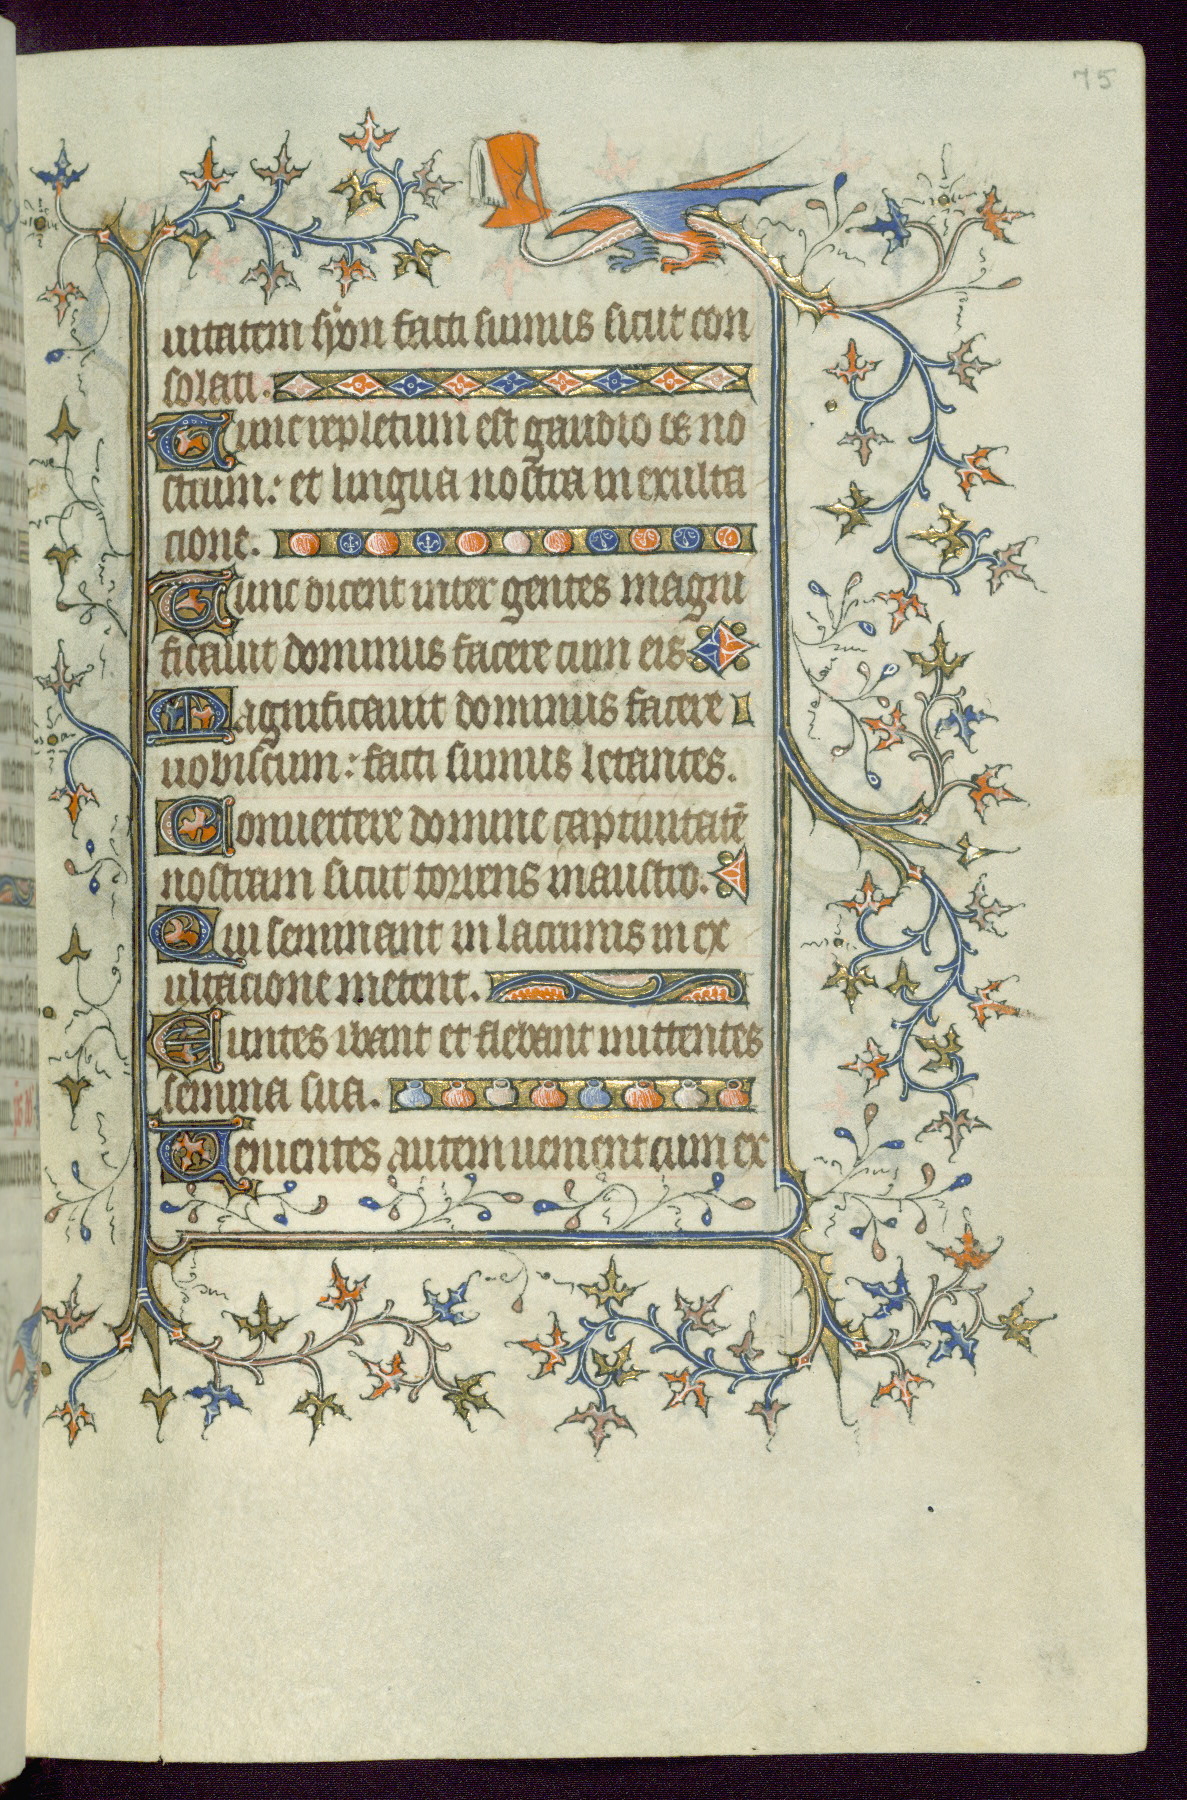 75
uitatem syon facti sumus sicut con
solati.
Tunc repletum est gaudio os no
strum: et lingua nostra in exulta
cione.
Tunc dicent inter gentes magni
ficauit dominus facere cum eis
Magnificauit dominus facere
nobiscum: facti sumus letantes.
Conuertere domine captiuitatē
nostram sicut torrens in austro.
Qui seminant in lacrimis in ex
ultacione metent.
Euntes ibant et flebant mittentes
semina sua.
Uenientes autem uenient cum ex